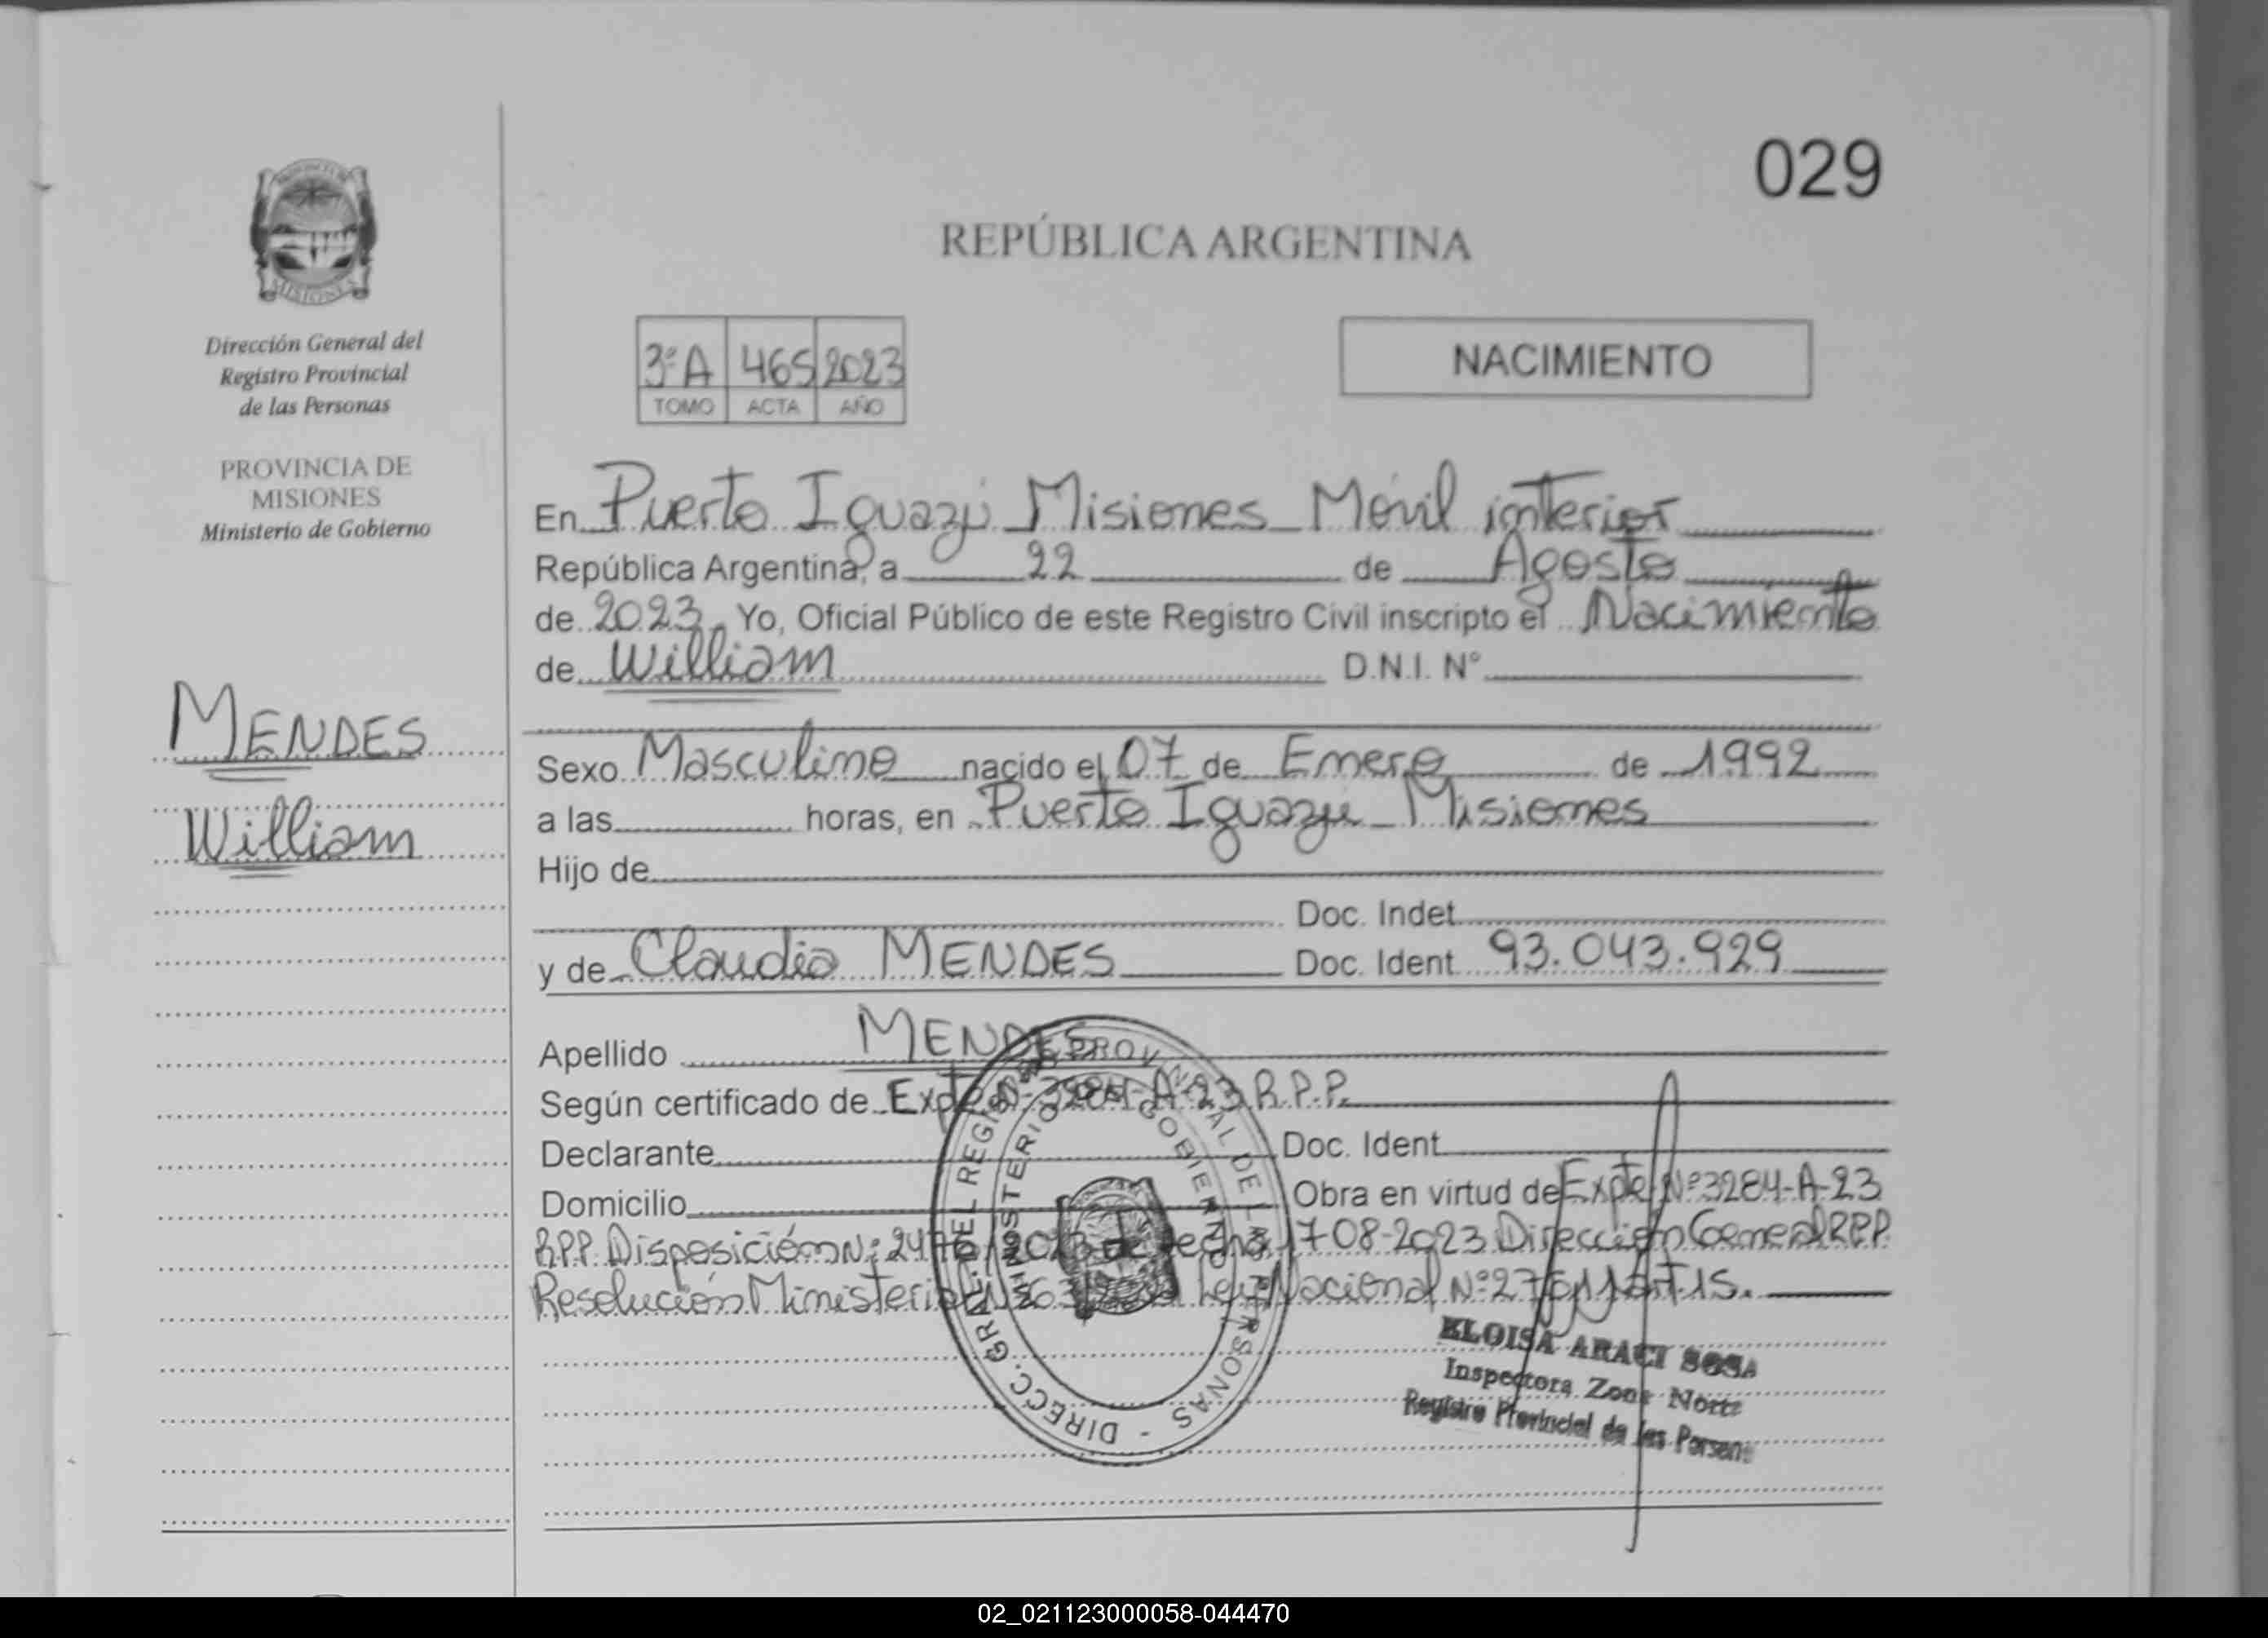 029
REPÚBLICA ARGENTINA
Dirección General del
Registro Provincial
de las Personas
PROVINCIA DE
MISIONES
Ministerio de Gobierno
3ºA 465 2023
TOMO ACTA AÑO
NACIMIENTO
En Puerto Iguazú Misiones_Móvil interior
República Argentina, a 22 de Agosto
de 2023 Yo, Oficial Público de este Registro Civil inscripto el Nacimiento
de William D.N.I. N°
MENDES
William
Sexo Masculino nacido el 07 de Enero de 1992
a las horas, en Puerto Iguazú_Misiones
Hijo de
Doc. Indet
y de Claudia MENDES Doc. Ident 93.043.929
Apellido MENDES
Según certificado de Expte Nº 3284-A-23 R.P.P.
Declarante Doc. Ident
Domicilio Obra en virtud de Expte Nº3284-A-23
R.P.P. Disposición Nº de fecha 17-08-2023 Dirección General RPP
Resolución Ministerial Ley Nacional Nº
DIRECC. GRAL. DEL REGISTRO PROVINCIAL DE LAS PERSONAS -
MINISTERIO DE GOBIERNO
ELOISA ARACI SOSA
Inspectora Zona Norte
Registro Provincial de las Persona
02_021123000058-044470